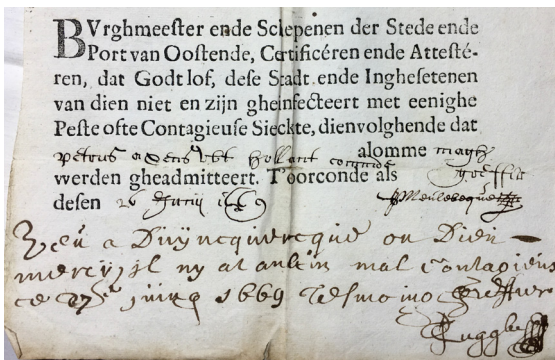 BVrghmeester ende Scepenen der Stede ende
Port van Oostende, Certificéren ende Attesté-
ren, dat Godt lof, dese Stadt ende Inghesetenen
van dien niet en zijn gheinfecteert met eenighe
Peste ofte Contagieuse Sieckte, dienvolghende dat
petrus hollant alomme magh
werden gheadmitteert. T'oorconde als greffier
desen 26 Junij 1669
Veu a Duyncquercque ou Dieu
mercy jl ny at aulcun mal contagieus
ce 27e juing 1669 Tesmoing Greffier